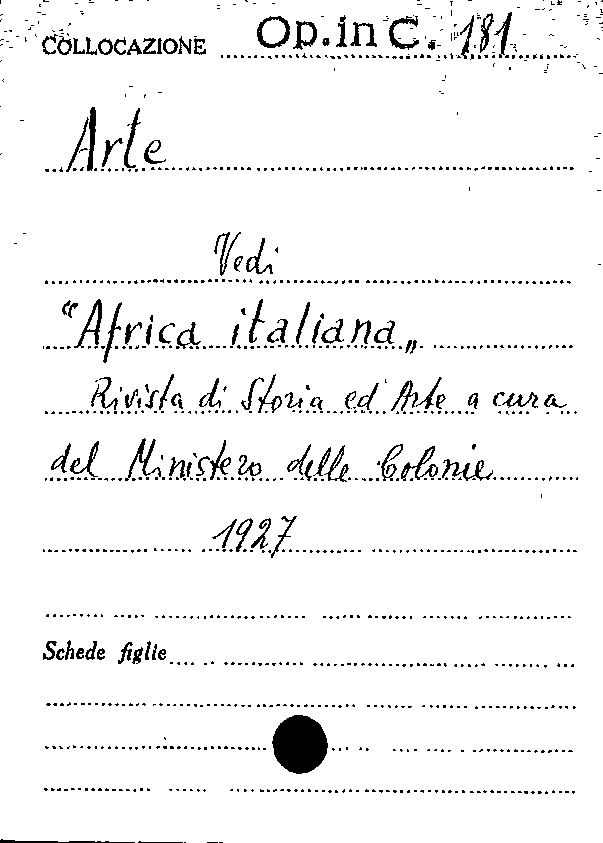 COLLOCAZIONE Op. in C. 181
Arte
Vedi
“Africa italiana„
Rivista di Storia ed Arte a cura
del Ministero delle Colonie
1927
Schede figlie